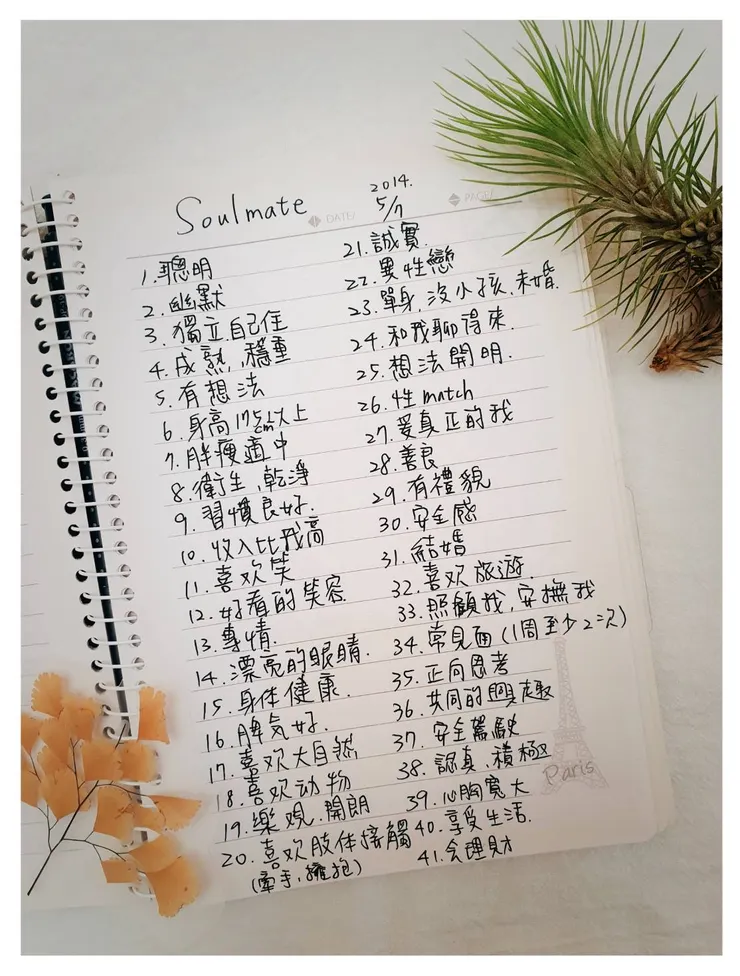 Soulmate
2014.
DATE/ 5/7 PAGE/
1. 聰明
2. 幽默
3. 獨立,自己住
4. 成熟,穩重
5. 有想法
6. 身高175cm以上
7. 胖瘦適中
8. 衛生,乾淨
9. 習慣良好.
10. 收入比我高
11. 喜欢笑
12. 好看的笑容
13. 專情.
14. 漂亮的眼睛.
15. 身体健康.
16. 脾氣好.
17. 喜欢大自然
18. 喜欢动物
19. 樂观,開朗
20. 喜欢肢体接觸
(牽手,擁抱)
21. 誠實.
22. 異性戀
23. 單身,沒小孩,未婚.
24. 和我聊得來.
25. 想法開明.
26. 性match
27. 爱真正的我
28. 善良
29. 有禮貌
30. 安全感
31. 結婚
32. 喜欢旅遊.
33. 照顧我,安撫我
34. 常見面(1周至少2=次)
35. 正向思考
36. 共同的興趣
37. 安全駕駛
38. 認真,積極
39. 心胸寬大
40. 享受生活.
41. 会理財
Paris